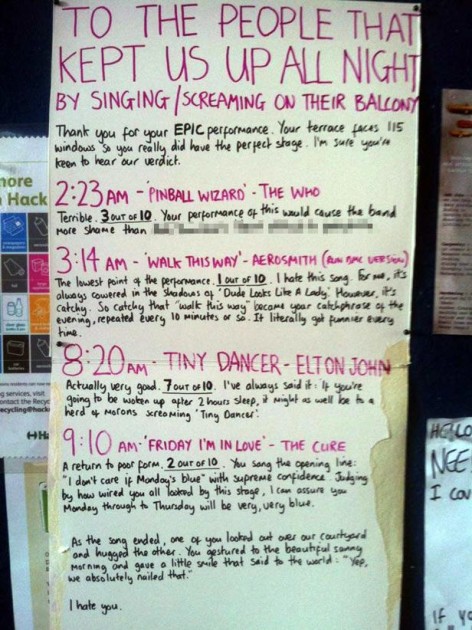 TO THE PEOPLE THAT
KEPT US UP ALL NIGHT
BY SINGING/SCREAMING ON THEIR BALCONY
Thank you for your EPIC performance. Your terrace faces 115
windows so you really did have the perfect stage. I'm sure you're
keen to hear our verdict.
2:23AM - 'PINBALL WIZARD' - THE WHO
Terrible. 3 OUT OF 10. Your performance of this would cause the band
more shame than
3:14 AM - 'WALK THIS WAY' - AEROSMITH (RUN DMC VERSION)
The lowest point of the performance. 1 OUT OF 10. I hate this song. For me, it's
always covered in the shadows of 'Dude Looks Like A Lady'. However, it's
catchy. So catchy that 'walk this way' became your catchphrase of the
evening, repeated every 10 minutes or so. It literally got funnier every
time.
8:20AM - TINY DANCER - ELTON JOHN
Actually very good. 7 OUT OF 10. I've always said it: If you're
going to be woken up after 2 hours sleep, it might as well be to a
herd of morons screaming 'Tiny Dancer'.
9:10 AM - 'FRIDAY I'M IN LOVE' - THE CURE
A return to poor form. 2 OUT OF 10. You sang the opening line:
"I don't care if Monday's blue" with supreme confidence. Judging
by how wired you all looked by this stage, I can assure you
Monday through to Thursday will be very, very blue.
As the song ended, one of you looked out over our courtyard
and hugged the other. You gestured to the beautiful sunny
morning and gave a little smile that said to the world: "Yep,
we absolutely nailed that."
I hate you.
more
Hack
HELLO
NEE
I co